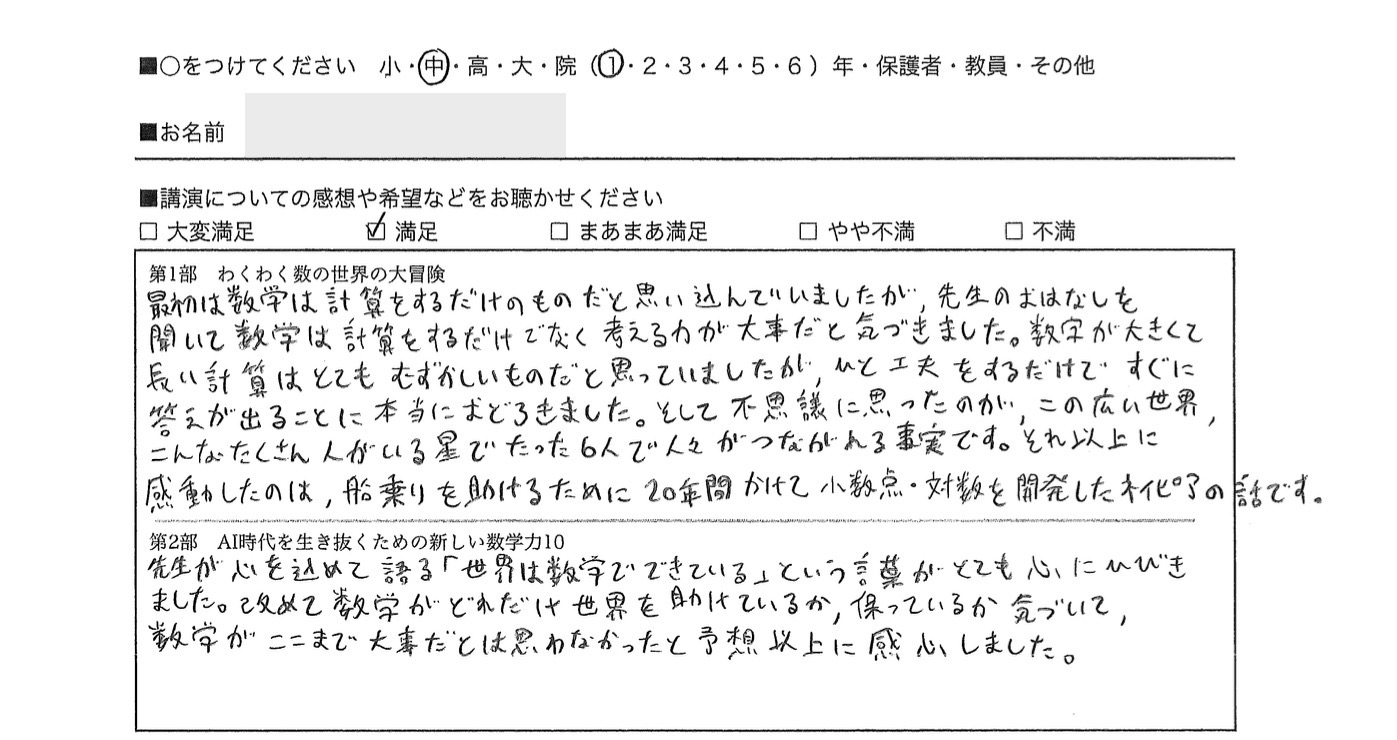 ■○をつけてください 小・中・高・大・院（1・2・3・4・5・6）年・保護者・教員・その他
■お名前
■講演についての感想や希望などをお聴かせください
□ 大変満足 ☑ 満足 □ まあまあ満足 □ やや不満 □ 不満
第1部 わくわく数の世界の大冒険
最初は数学は計算をするだけのものだと思い込んでいましたが，先生のおはなしを
聞いて数学は計算をするだけでなく考える力が大事だと気づきました。数字が大きくて
長い計算はとてもむずかしいものだと思っていましたが，ひと工夫をするだけですぐに
答えが出ることに本当におどろきました。そして不思議に思ったのが，この広い世界，
こんなたくさん人がいる星でたった6人で人々がつながれる事実です。それ以上に
感動したのは，船乗りを助けるために20年間かけて小数点・対数を開発したネイピアの話です。
第2部 AI時代を生き抜くための新しい数学力10
先生が心を込めて語る「世界は数学でできている」という言葉がとても心にひびき
ました。改めて数学がどれだけ世界を助けているか，保っているか気づいて，
数学がここまで大事だとは思わなかったと予想以上に感心しました。